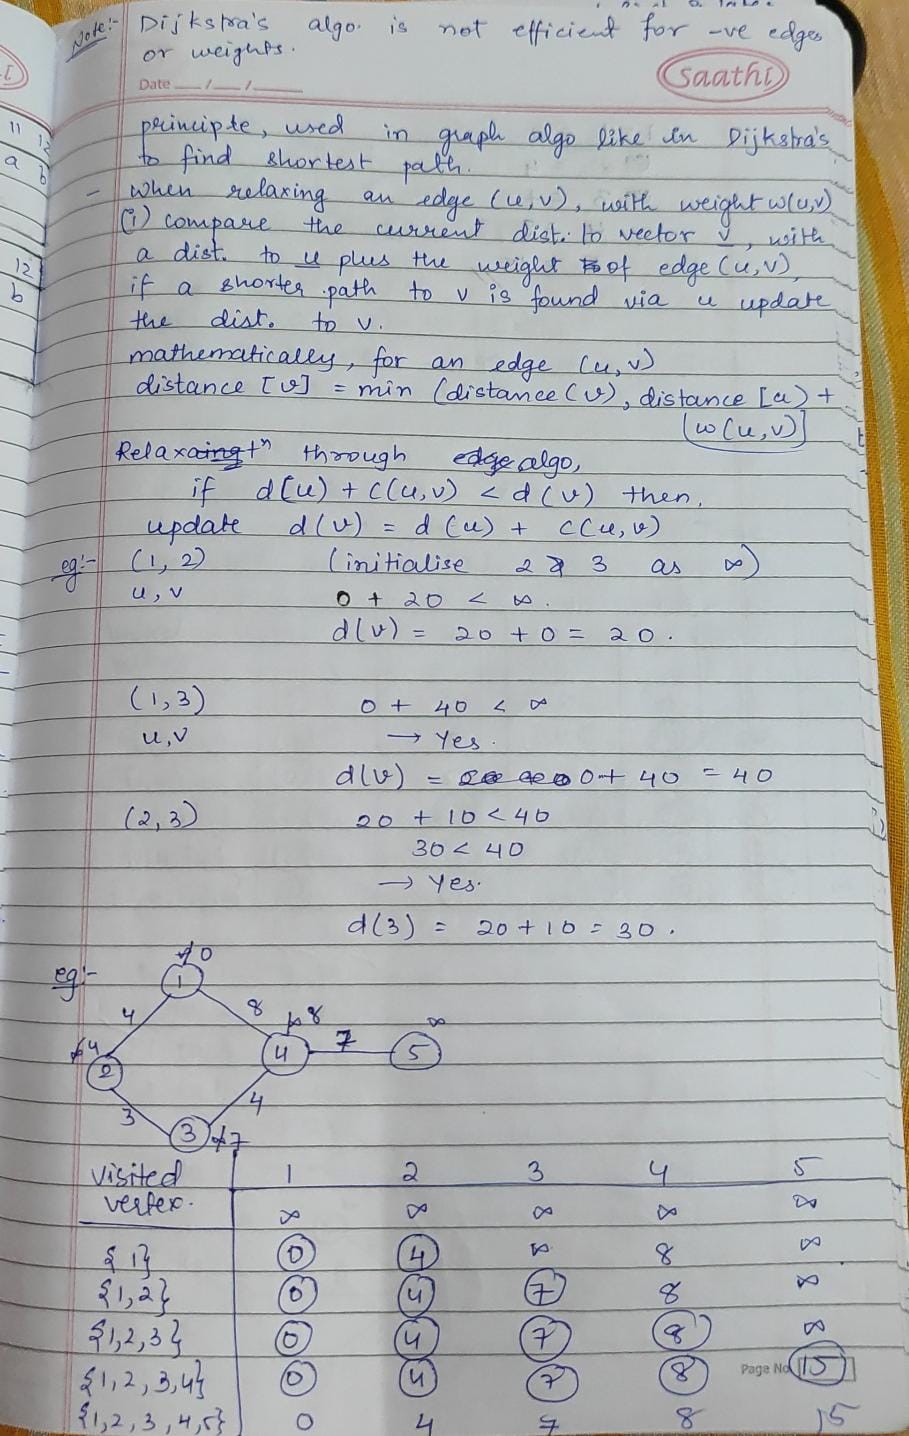 Note:- Dijkstra's algo. is not efficient for -ve edges
or weights.
Date
saathi
principte, used in graph algo like in Dijkstra's
to find shortest path.
- when relaxing an edge (u,v), with weight w(u,v)
(i) compare the current dist. to vector v, with
a dist. to u plus the weight of edge (u,v)
if a shorter path to v is found via u update
the dist. to v.
mathematically, for an edge (u,v)
distance [v] = min (distance (v), distance [u) +
w(u,v)]
Relaxatⁿ through algo,
if d(u) + c(u,v) < d(v) then,
update d(v) = d(u) + c(u,v)
eg:- (1,2) (initialise 2 & 3 as ∞)
u, v 0 + 20 < ∞.
d(v) = 20 + 0 = 20.
(1,3) 0 + 40 < ∞
u,v → Yes.
d(v) = 0 + 40 = 40
(2,3) 20 + 10 < 40
30 < 40
→ Yes.
d(3) = 20 + 10 = 30.
eg:-
0
1
4 8
∞ 8 ∞
4 2 4 7 5
3 4
3 7
visited vertex. 1 2 3 4 5
∞ ∞ ∞ ∞ ∞
{1} 0 4 ∞ 8 ∞
{1,2} 0 4 7 8 ∞
{1,2,3} 0 4 7 8 ∞
{1,2,3,4} 0 4 7 8 15
Page No.
{1,2,3,4,5} 0 4 7 8 15